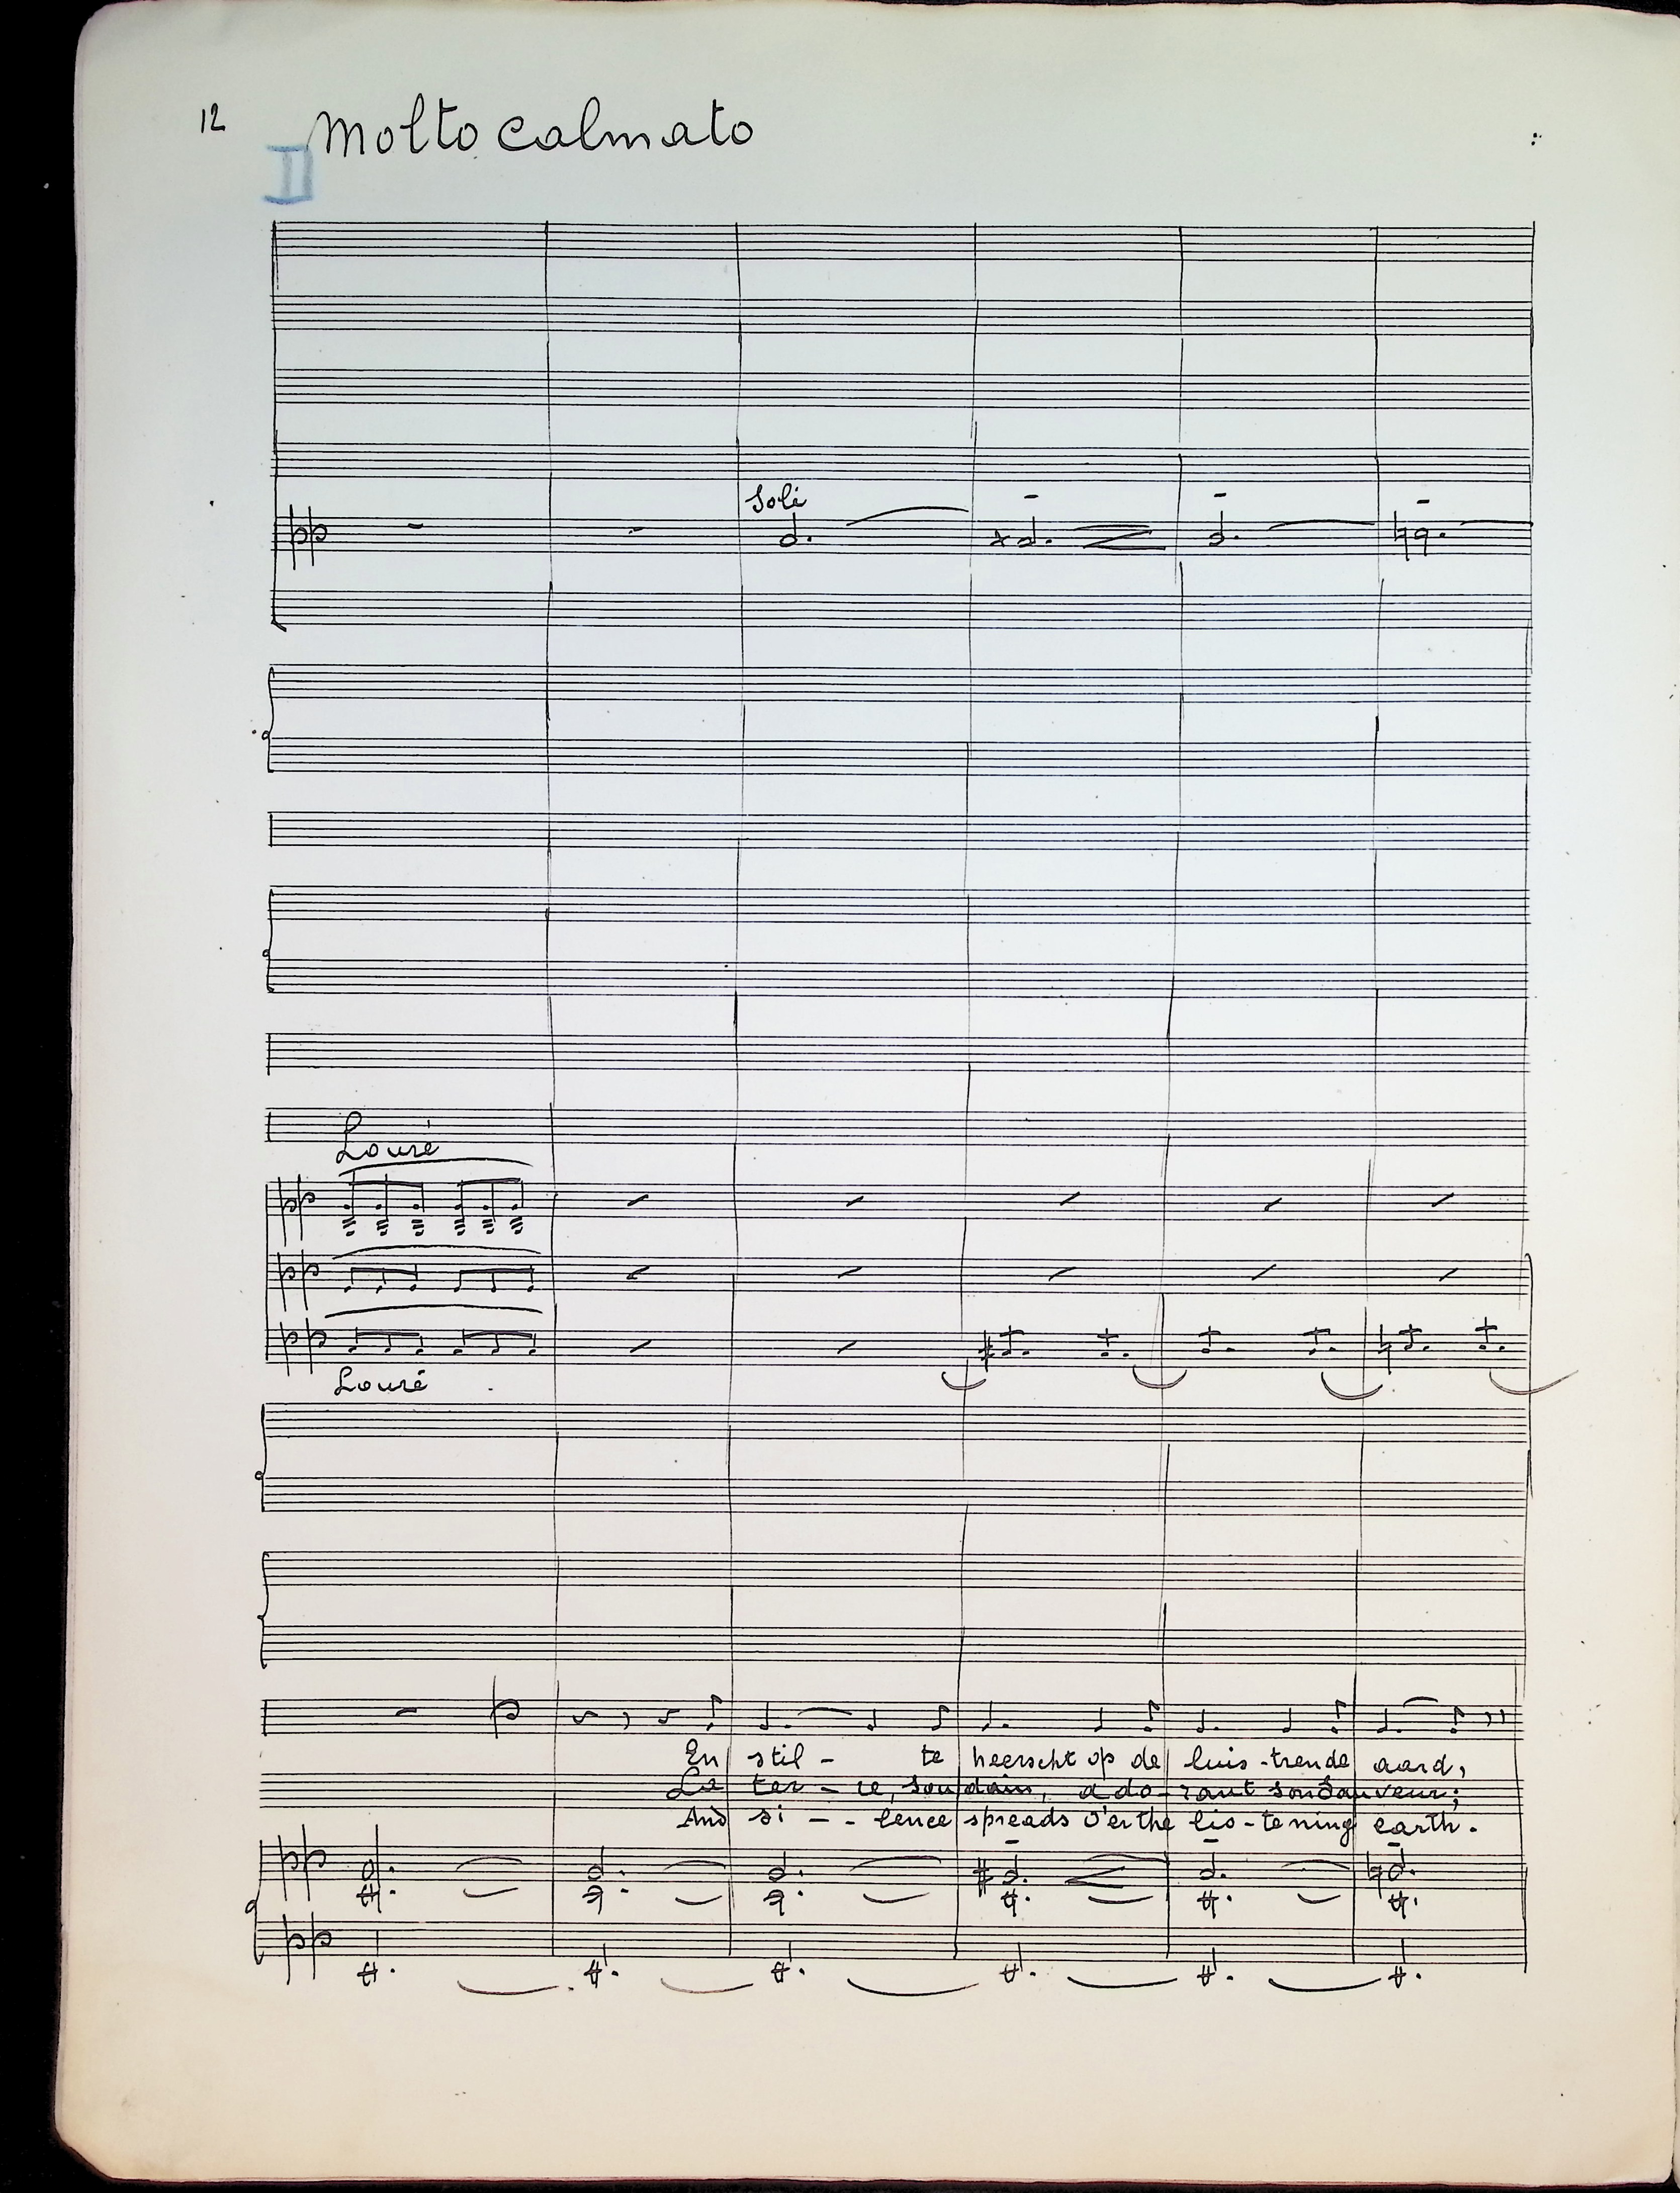 12
Molto calmato
II
Soli
Louré
Louré
En stil - te heerscht op de luis - trende aard,
La ter - re, soudain, a do - rant son Sauveur;
And si - - lence spreads o'er the lis - tening earth.